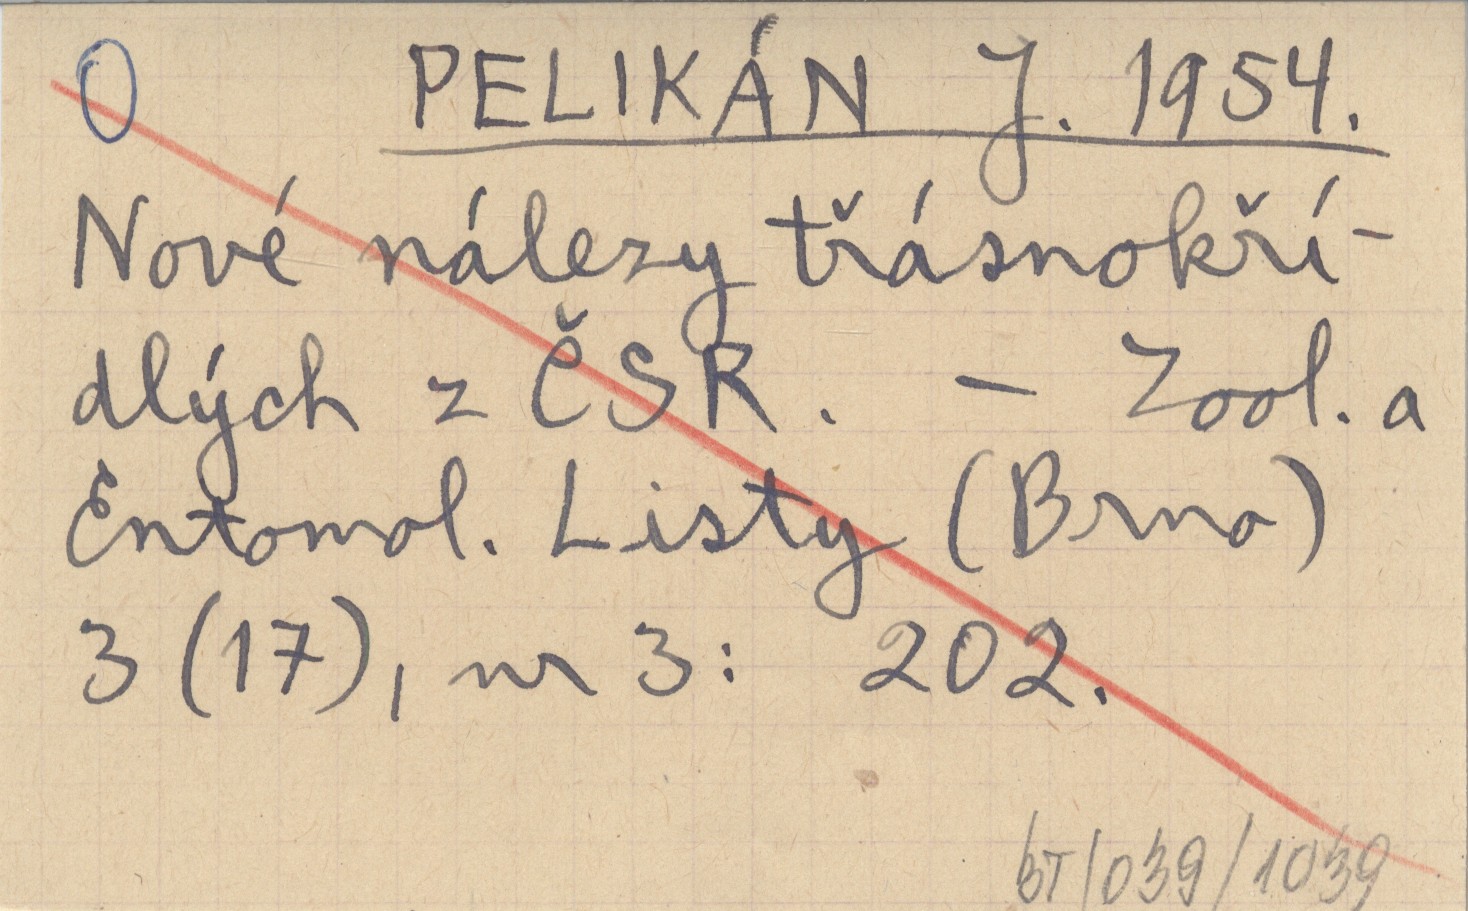 O PELIKÁN J. 1954.
Nové nálezy třásnokří-
dlých z ČSR. - Zool. a
Entomol. Listy (Brno)
3 (17), nr 3: 202.
BT/039/1039